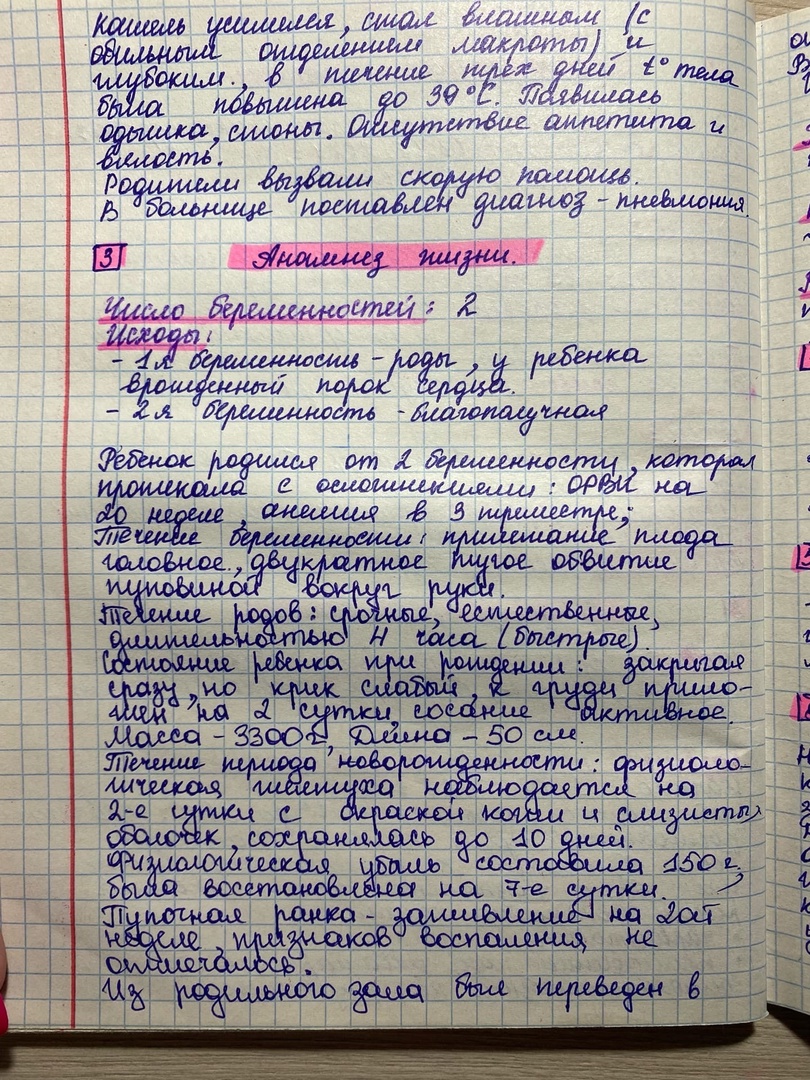 Кашель усилился, стал влажным (с
обильным отделением макроты) и
глубоким., в течение трёх дней t° тела
была повышена до 39°С. Появилась
одышка, стоны. Отсутствие аппетита и
вялость.
Родители вызвали скорую помощь.
В больнице поставлен диагноз - пневмония.
3 Анамнез жизни.
Число беременностей: 2
Исходы:
- 1я беременность - роды, у ребенка
врожденный порок сердца.
- 2я беременность - благополучная
Ребенок родился от 2 беременности, которая
протекала с осложнениями: ОРВИ на
20 неделе, анемия в 3 триместре;
Течение беременности: прилежание плода
головное, двукратное тугое обвитие
пуповиной вокруг руки.
Течение родов: срочные, естественные,
длительностью 4 часа (быстрые).
Состояние ребенка при рождении: закричал
сразу, но крик слабый, к груди прило-
жен на 2 сутки, сосание активное.
Масса - 3300г, Длина - 50 см.
Течение периода новорожденности: физиоло-
гическая желтуха наблюдается на
2-е сутки с окраской кожи и слизистых
оболочек, сохранялась до 10 дней.
Физиологическая убыль составила 150 г.,
была восстановлена на 7-е сутки.
Пупочная ранка - заживление на 2ой
неделе, признаков воспаления не
отмечалось.
Из родильного зала был переведен в